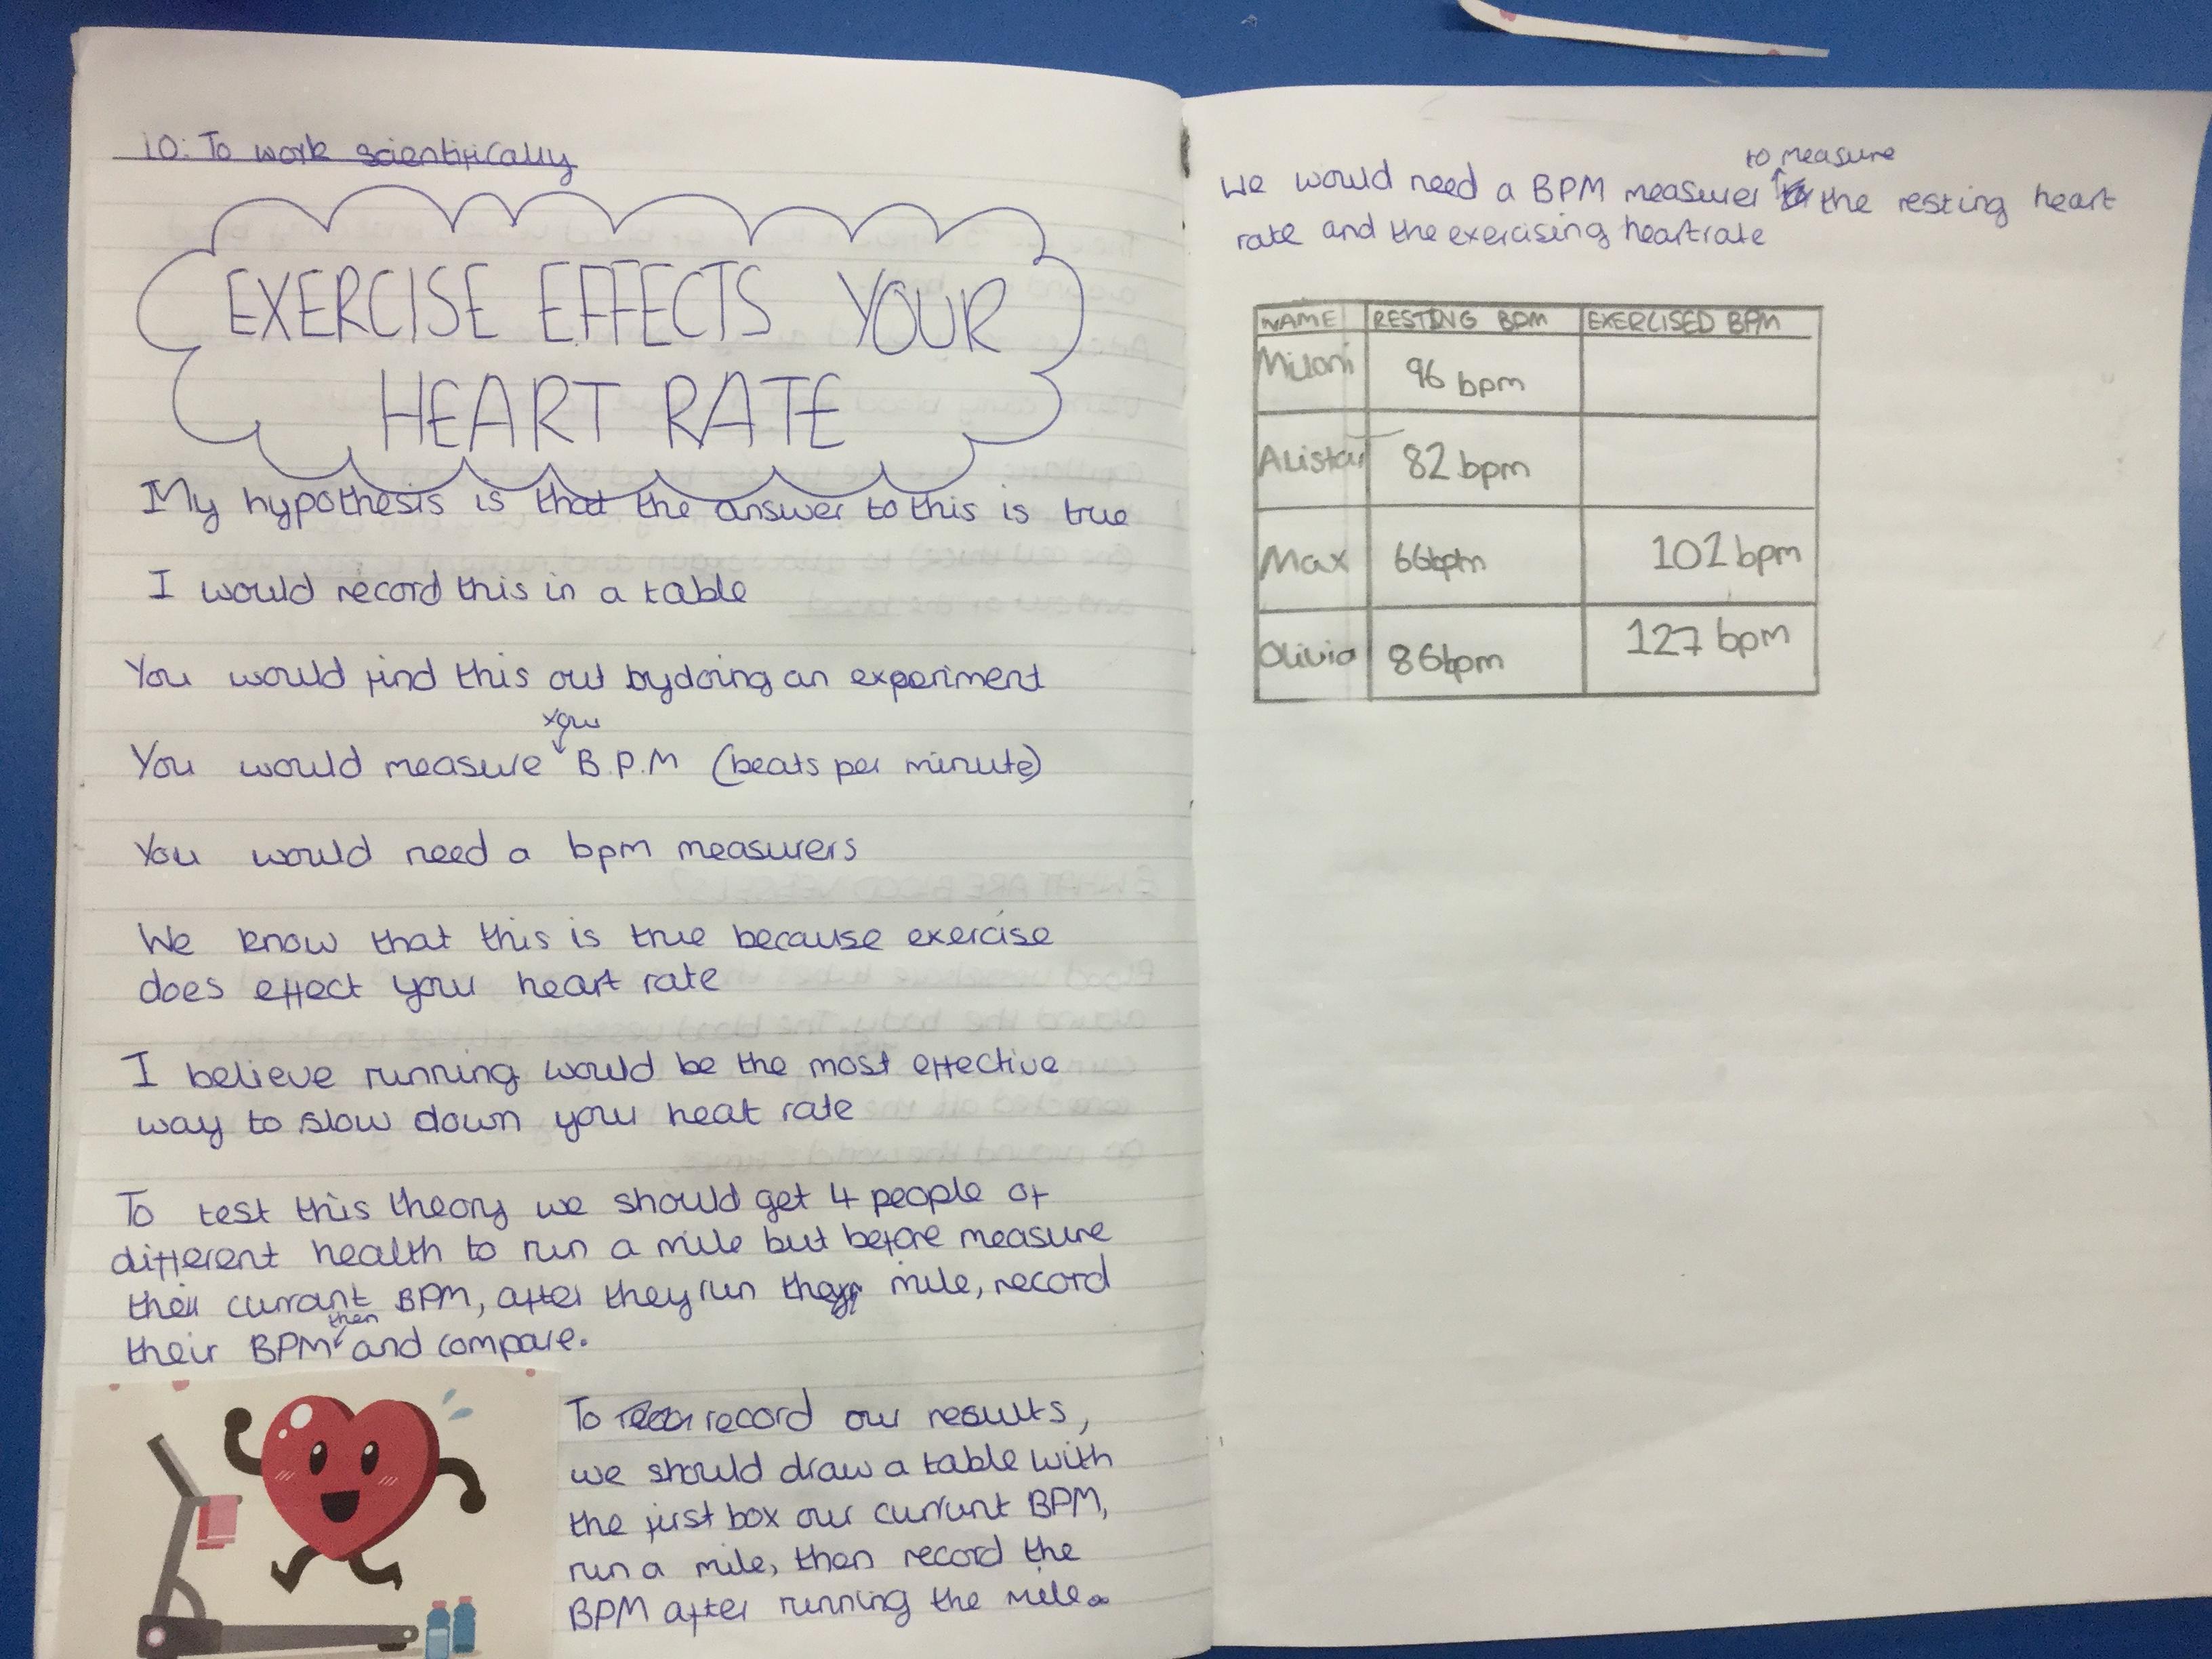 LO: To work scientifically
EXERCISE EFFECTS YOUR
HEART RATE
My hypothesis is that the answer to this is true
I would record this in a table
You would find this out by doing an experiment
your
You would measure B.P.M (beats per minute)
You would need a bpm measurers
We know that this is true because exercise
does effect your heart rate
I believe running would be the most effective
way to slow down your heat rate
To test this theory we should get 4 people of
different health to run a mile but before measure
their currant BPM, after they run the mile, record
then
their BPM and compare.
To record our results,
we should draw a table with
the fist box our currunt BPM,
run a mile, then record the
BPM after running the mile.
to measure
We would need a BPM measurer the resting heart
rate and the exercising heartrate
NAME RESTING BPM EXERCISED BPM
Miloni 96 bpm
Alistar 82 bpm
Max 66bpm 102 bpm
Olivia 86bpm 127 bpm